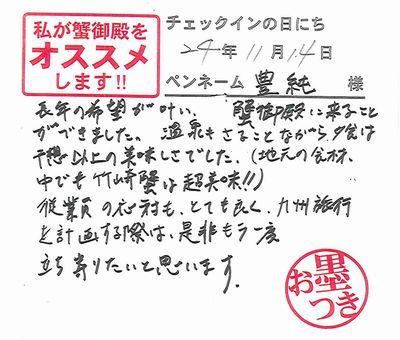 私が蟹御殿を
オススメ
します!!
チェックインの日にち
24年11月14日
ペンネーム 豊純 様
長年の希望が叶い、蟹御殿に来ること
ができました。温泉もさることながら、夕食は
予想以上の美味しさでした。(地元の食材、
中でも竹崎蟹は超美味!!)
従業員の応対も、とても良く、九州旅行
を計画する際は、是非もう一度
立ち寄りたいと思います。
お墨つき